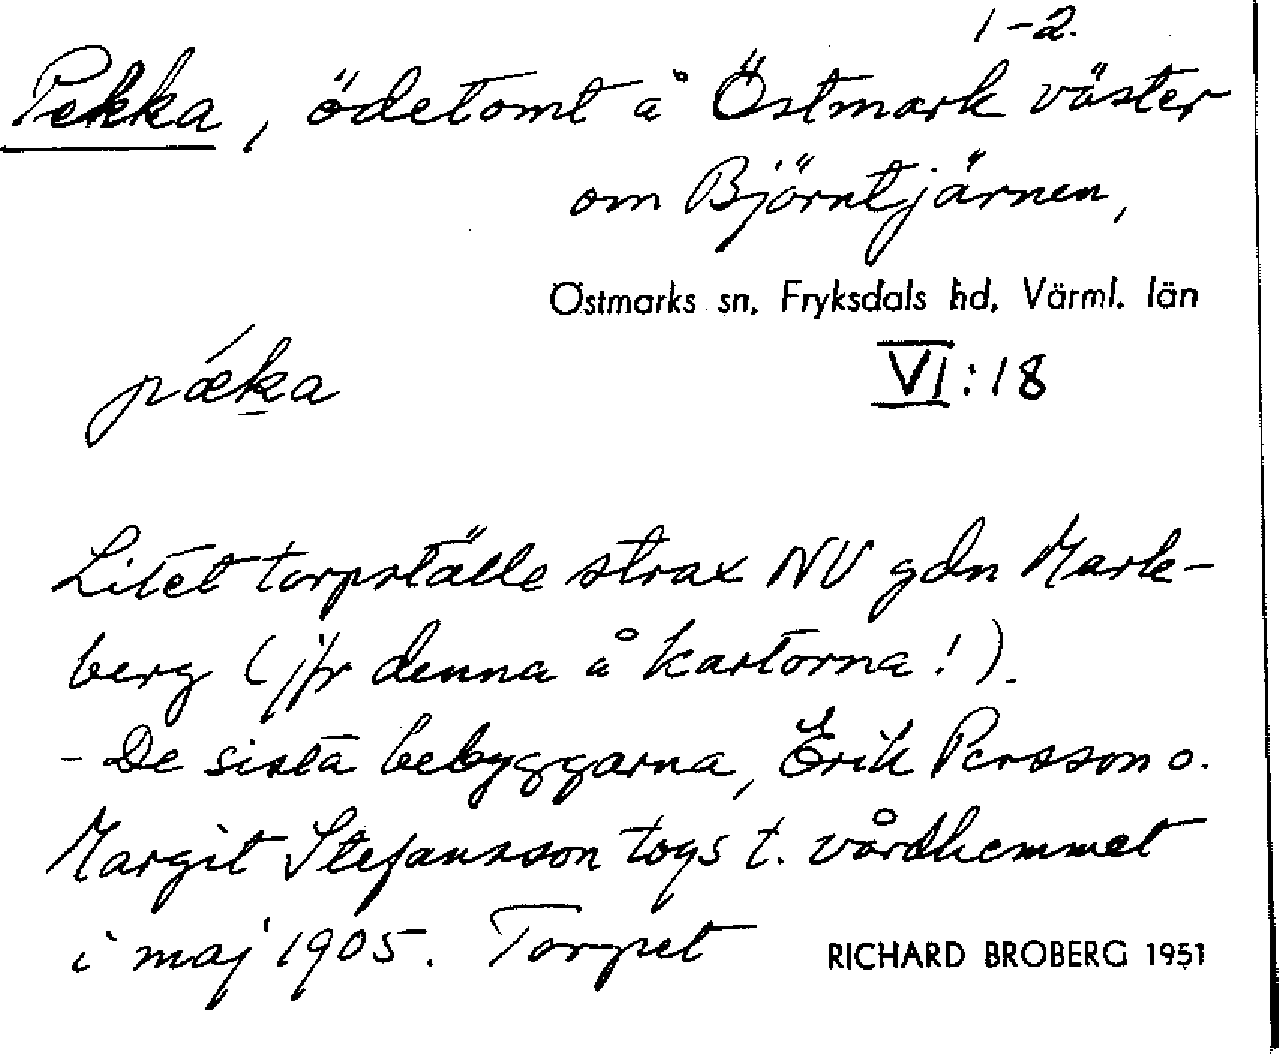 1-2.
Pekka, ödetomt å Östmark väster
om Björntjärnen,
Östmarks sn, Fryksdals hd, Värml. län
pǽka
VI:18
Litet torpställe strax NV gdn Mark-
berg (jfr denna å kartorna!).
- De sista bebyggarna, Erik Persson o.
Margit Stefansson togs t. vårdhemmet
i maj 1905. Torpet
RICHARD BROBERG 1951